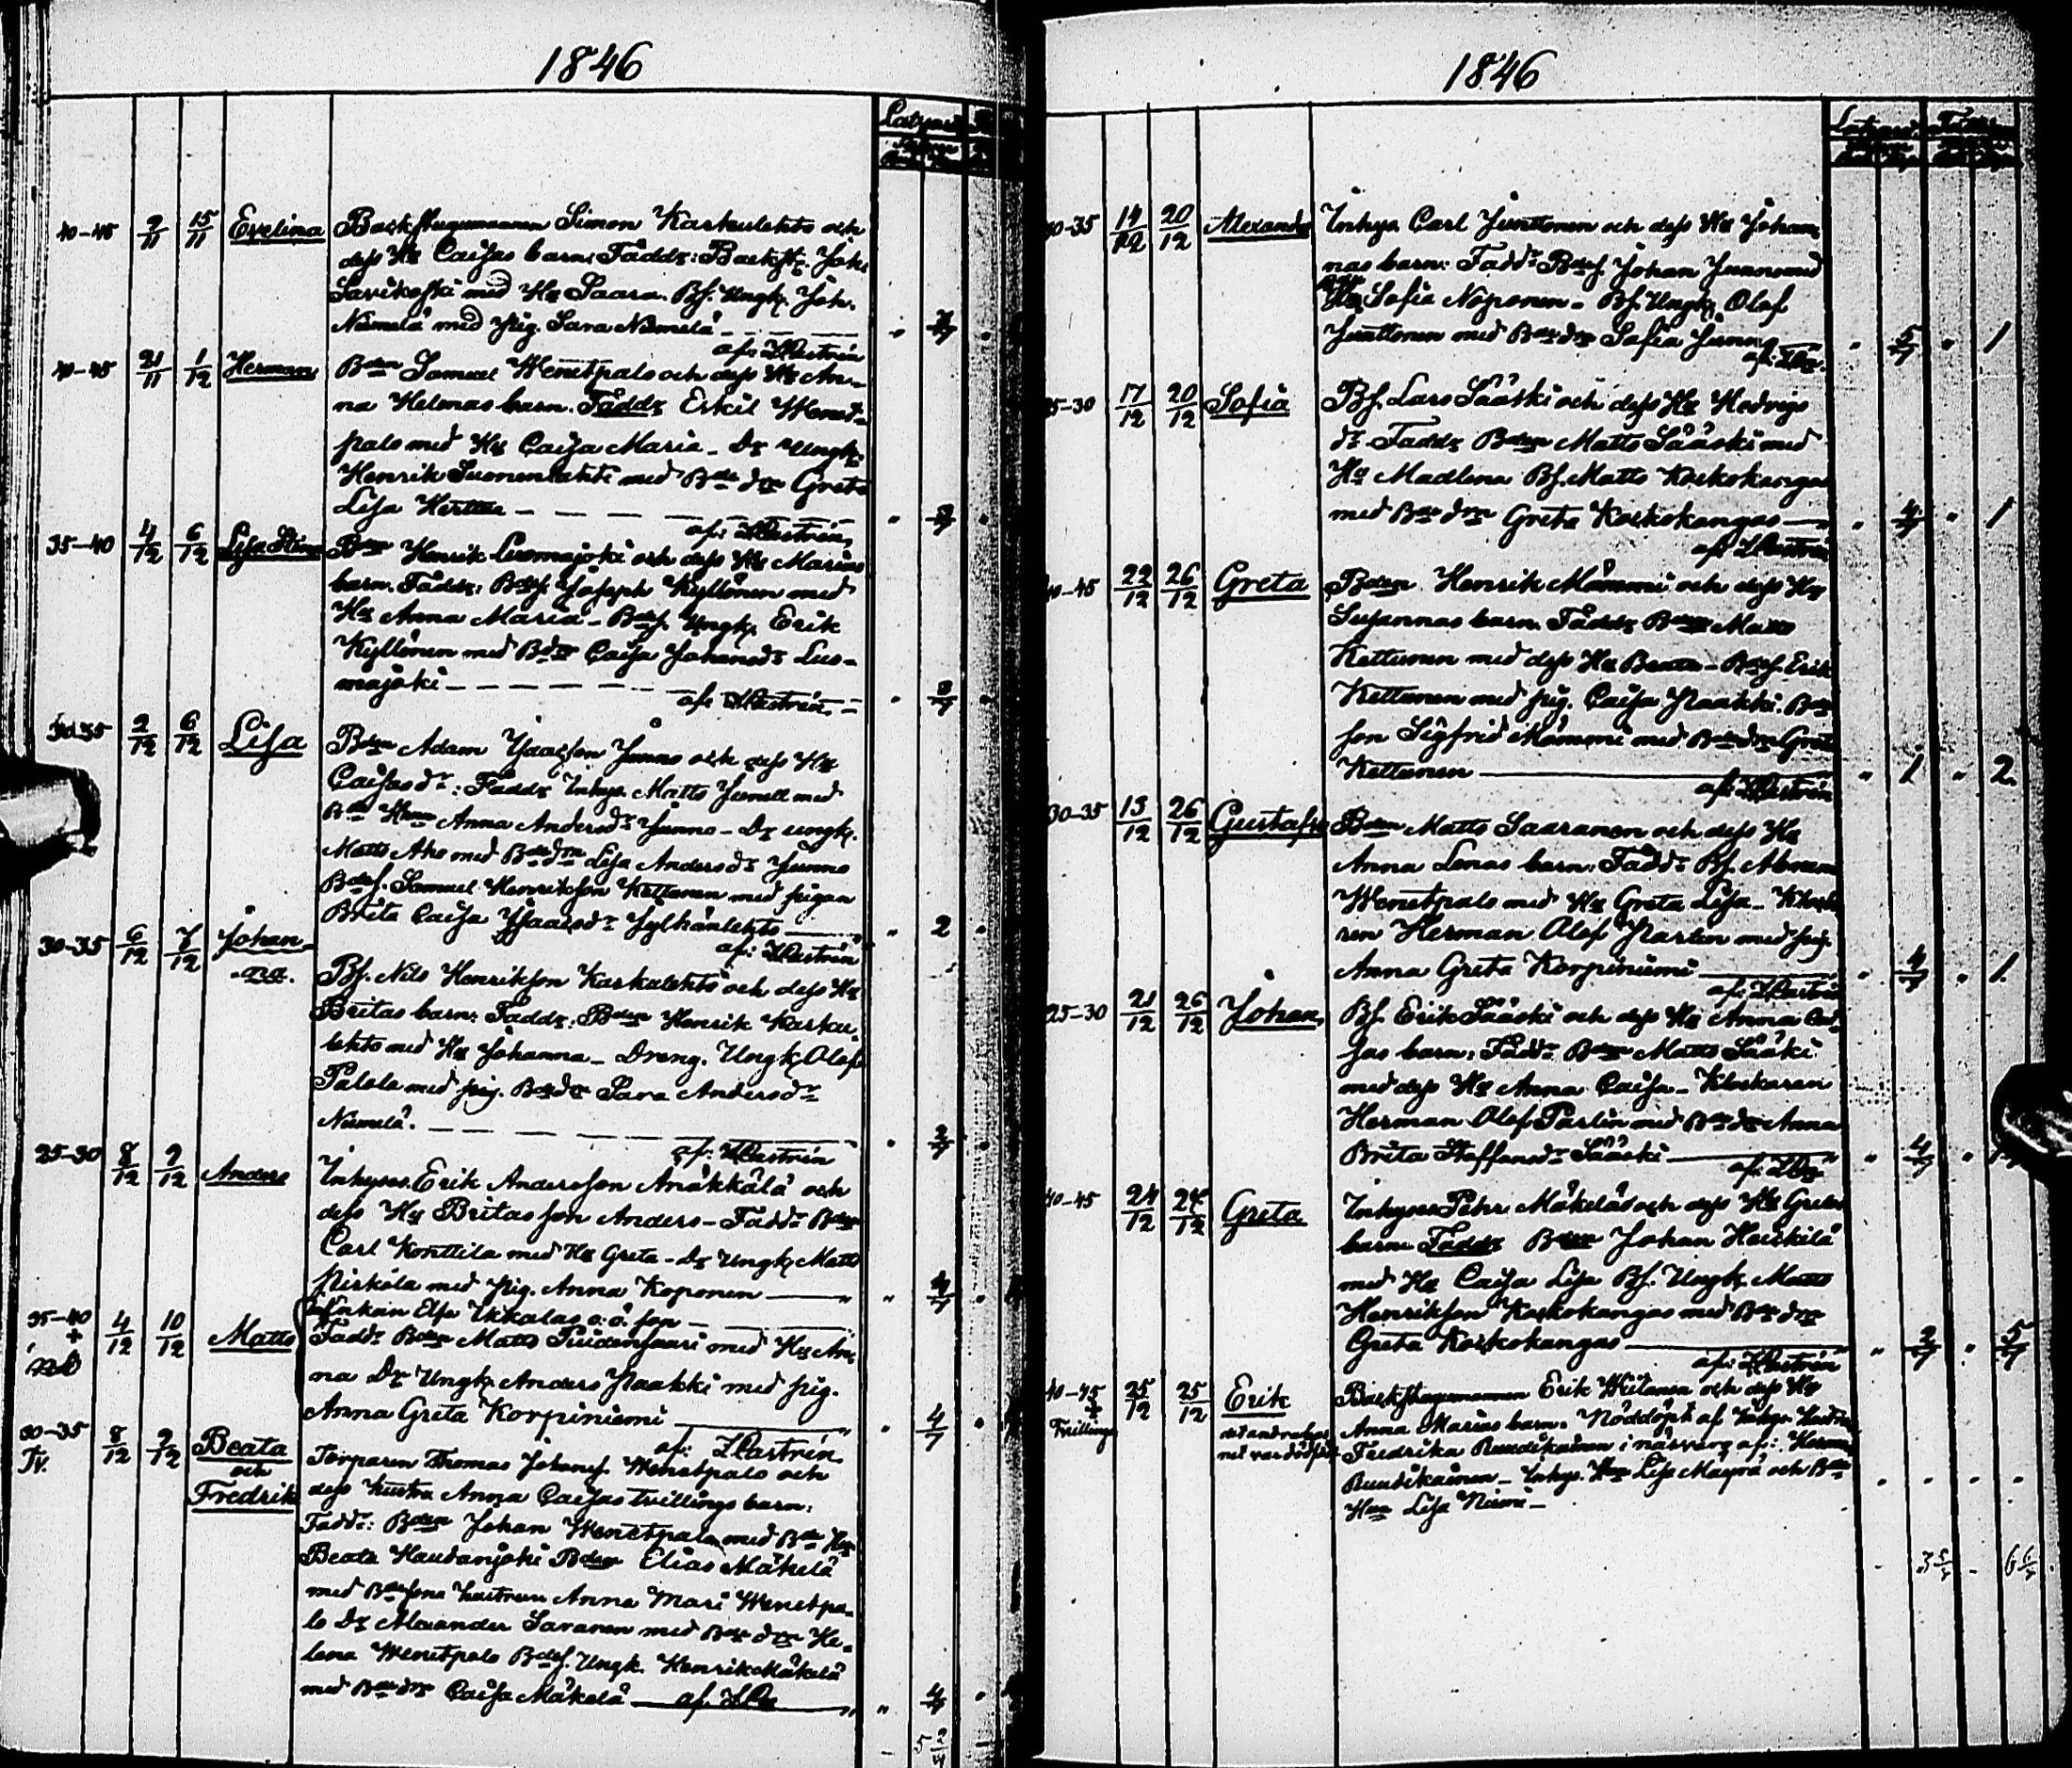 1846
40-45 9/11 15/11 Evelina Backstugumannen Simon Karkulehto och
dess Hu Caisas barn: Faddr: Backst. Joh.
Savikoski med Hu Saara. Bs. Ungk. Joh.
Niemelä med pig. Sara Niemelä
af: ZCastrén
40-45 21/11 1/12 Herman Bden Samuel Wenetpalo och dess Hu An-
na Helenas barn. Faddr Eskil Wenet-
palo med Hu Caisa Maria - Dr Ungk.
Henrik Suonenlahti med Bde dr Greta
Lisa Herttua
af: ZCastrén
35-40 4/12 6/12 Lisa Stina Bden Henrik Luomajoki och dess Hu Marias
barn. Faddr: Bdes. Joseph Kyllönen med
Hu Anna Maria - Bdes. Ungk. Erik
Kyllönen med Bdr Caisa Johansdr Luo-
majoki
af: ZCastrén
30-35 2/12 6/12 Lisa Bden Adam Isacsson Junno och dess Hu
Caisas dr: Faddr Inhys. Matts Junell med
Bde Hun Anna Andersdr Junno - Dr ungk.
Matts Aho med Bdedr Lisa Andersdr Junno
Bdes. Samuel Henriksson Kettunen med pigan
Brita Caisa Isaacsdr Jylkänlehto
af: ZCastrén
30-35 6/12 7/12 Johan-
na.
Bs. Nils Henriksson Karkulehto och dess Hu
Britas barn: Faddr: Bden Henrik Karku
lehto med Hu Johanna - Dreng. Ungk. Olof
Palola med pig. Bdedr Sara Andersdr
Niemelä.
af: ZCastrén
25-30 8/12 9/12 Anders Inhyses. Erik Andersson Anäkkälä och
dess Hu Britas son Anders - Faddr Bden
Carl Konttila med Hu Greta - Dr Ungk. Matts
Pirkola med pig. Anna Koponen
35-40 4/12 10/12 Matts Enkan Elsa Ukkalas o. ä. son
Faddr Bden Matts Puidensaari med Hu An-
na Dr Ungk. Anders Paakki med pig.
Anna Greta Korpiniemi 4/7
af: ZCastrén
30-35
Tv. 8/12 9/12 Beata
och
Fredrik
Torparen Thomas Johans. Wenetpalo och
dess hustru Anna Caisas tvillings barn:
Faddr: Bden Johan Wenetpalo med Bde Hu
Beata Haudanjoki Bden Elias Mäkelä
med Bdesona hustrun Anna Mari Wenetpa-
lo Dr Alexander Saranen med Bde dr He-
lena Wenetpalo Bdes. Ungk. Henrik Mäkelä
med Bde dr Caisa Mäkelä
1846
30-35 14/12 20/12 Alexander Inhys. Carl Junttonen och dess Hu Johan-
nas barn: Faddr Bdes. Johan Junno med
Hu Sofia Noponen - Bs. Ungk. Olof
Junttonen med Bde dr Sofia Junno 5/7 1
25-30 17/12 20/12 Sofia Bs. Lars Sääski och dess Hu Hedvigs
dr Faddr Bden Matts Sääski med
Hu Madlena Bs. Matts Koskokangas
med Bde dr Greta Koskokangas 4/7 1
af: ZCastrén
40-45 22/12 26/12 Greta Bden Henrik Mämmi och dess Hu
Susannas barn. Faddr Bden Matts
Kettunen med dess Hu Beata - Bdes. Erik
Kettunen med pig. Caisa Paakki. Bde
son Sigfrid Mämmi med Bde dr Greta
Kettunen 1 2
af: ZCastrén
30-35 13/12 26/12 Gustafva Bden Matts Saaranen och dess Hu
Anna Lenas barn: Faddr Bs. Abram
Wenetpalo med Hu Greta Lisa - Klocka
ren Herman Olof Parlin med pig.
Anna Greta Korpiniemi 4/7 1
af: ZCastrén
25-30 21/12 26/12 Johan Bs. Erik Sääski och dess Hu Anna Cai-
sas barn: Faddr Bden Matts Sääki
med dess Hu Anna Caisa - Klockaren
Herman Olof Parlin med Bde dr Anna
Brita Staffansdr Sääski 4/7 1
40-45 24/12 24/12 Greta Inhyses Pehr Mäkeläs och dess Hu Gretas
barn Faddr Bden Johan Heiskilä
med Hu Caisa Lisa Bs. Ungk. Matts
Henriksson Koskokangas med Bde dr
Greta Koskokangas 2/7 5/7
af: ZCastrén
40-45
Tvillings 25/12 25/12 Erik
det andra bar
net var dödfödt
Backstugumannen Erik Weitanen och dess Hu
Anna Marias barn. Nöddöpt af Inhys. Hustru
Fredrika Ruudikainen i närvaro af: Herman
Ruudikainen - Inhys. Hun Lisa Mayrä och Bde
Hun Lisa Niemi
3 5/7 6 6/7